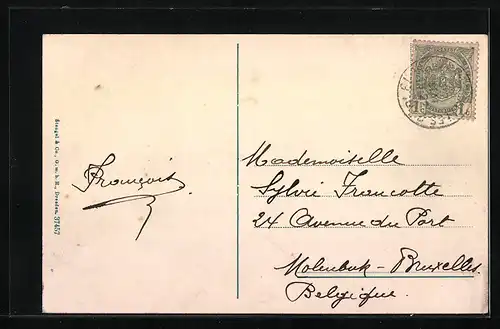 Stengel & Co., G. m. b. H., Dresden. 37457
François
Mademoiselle
Sylvie Francotte
24 Avenue du Port
Molenbeek - Bruxelles.
Belgique.